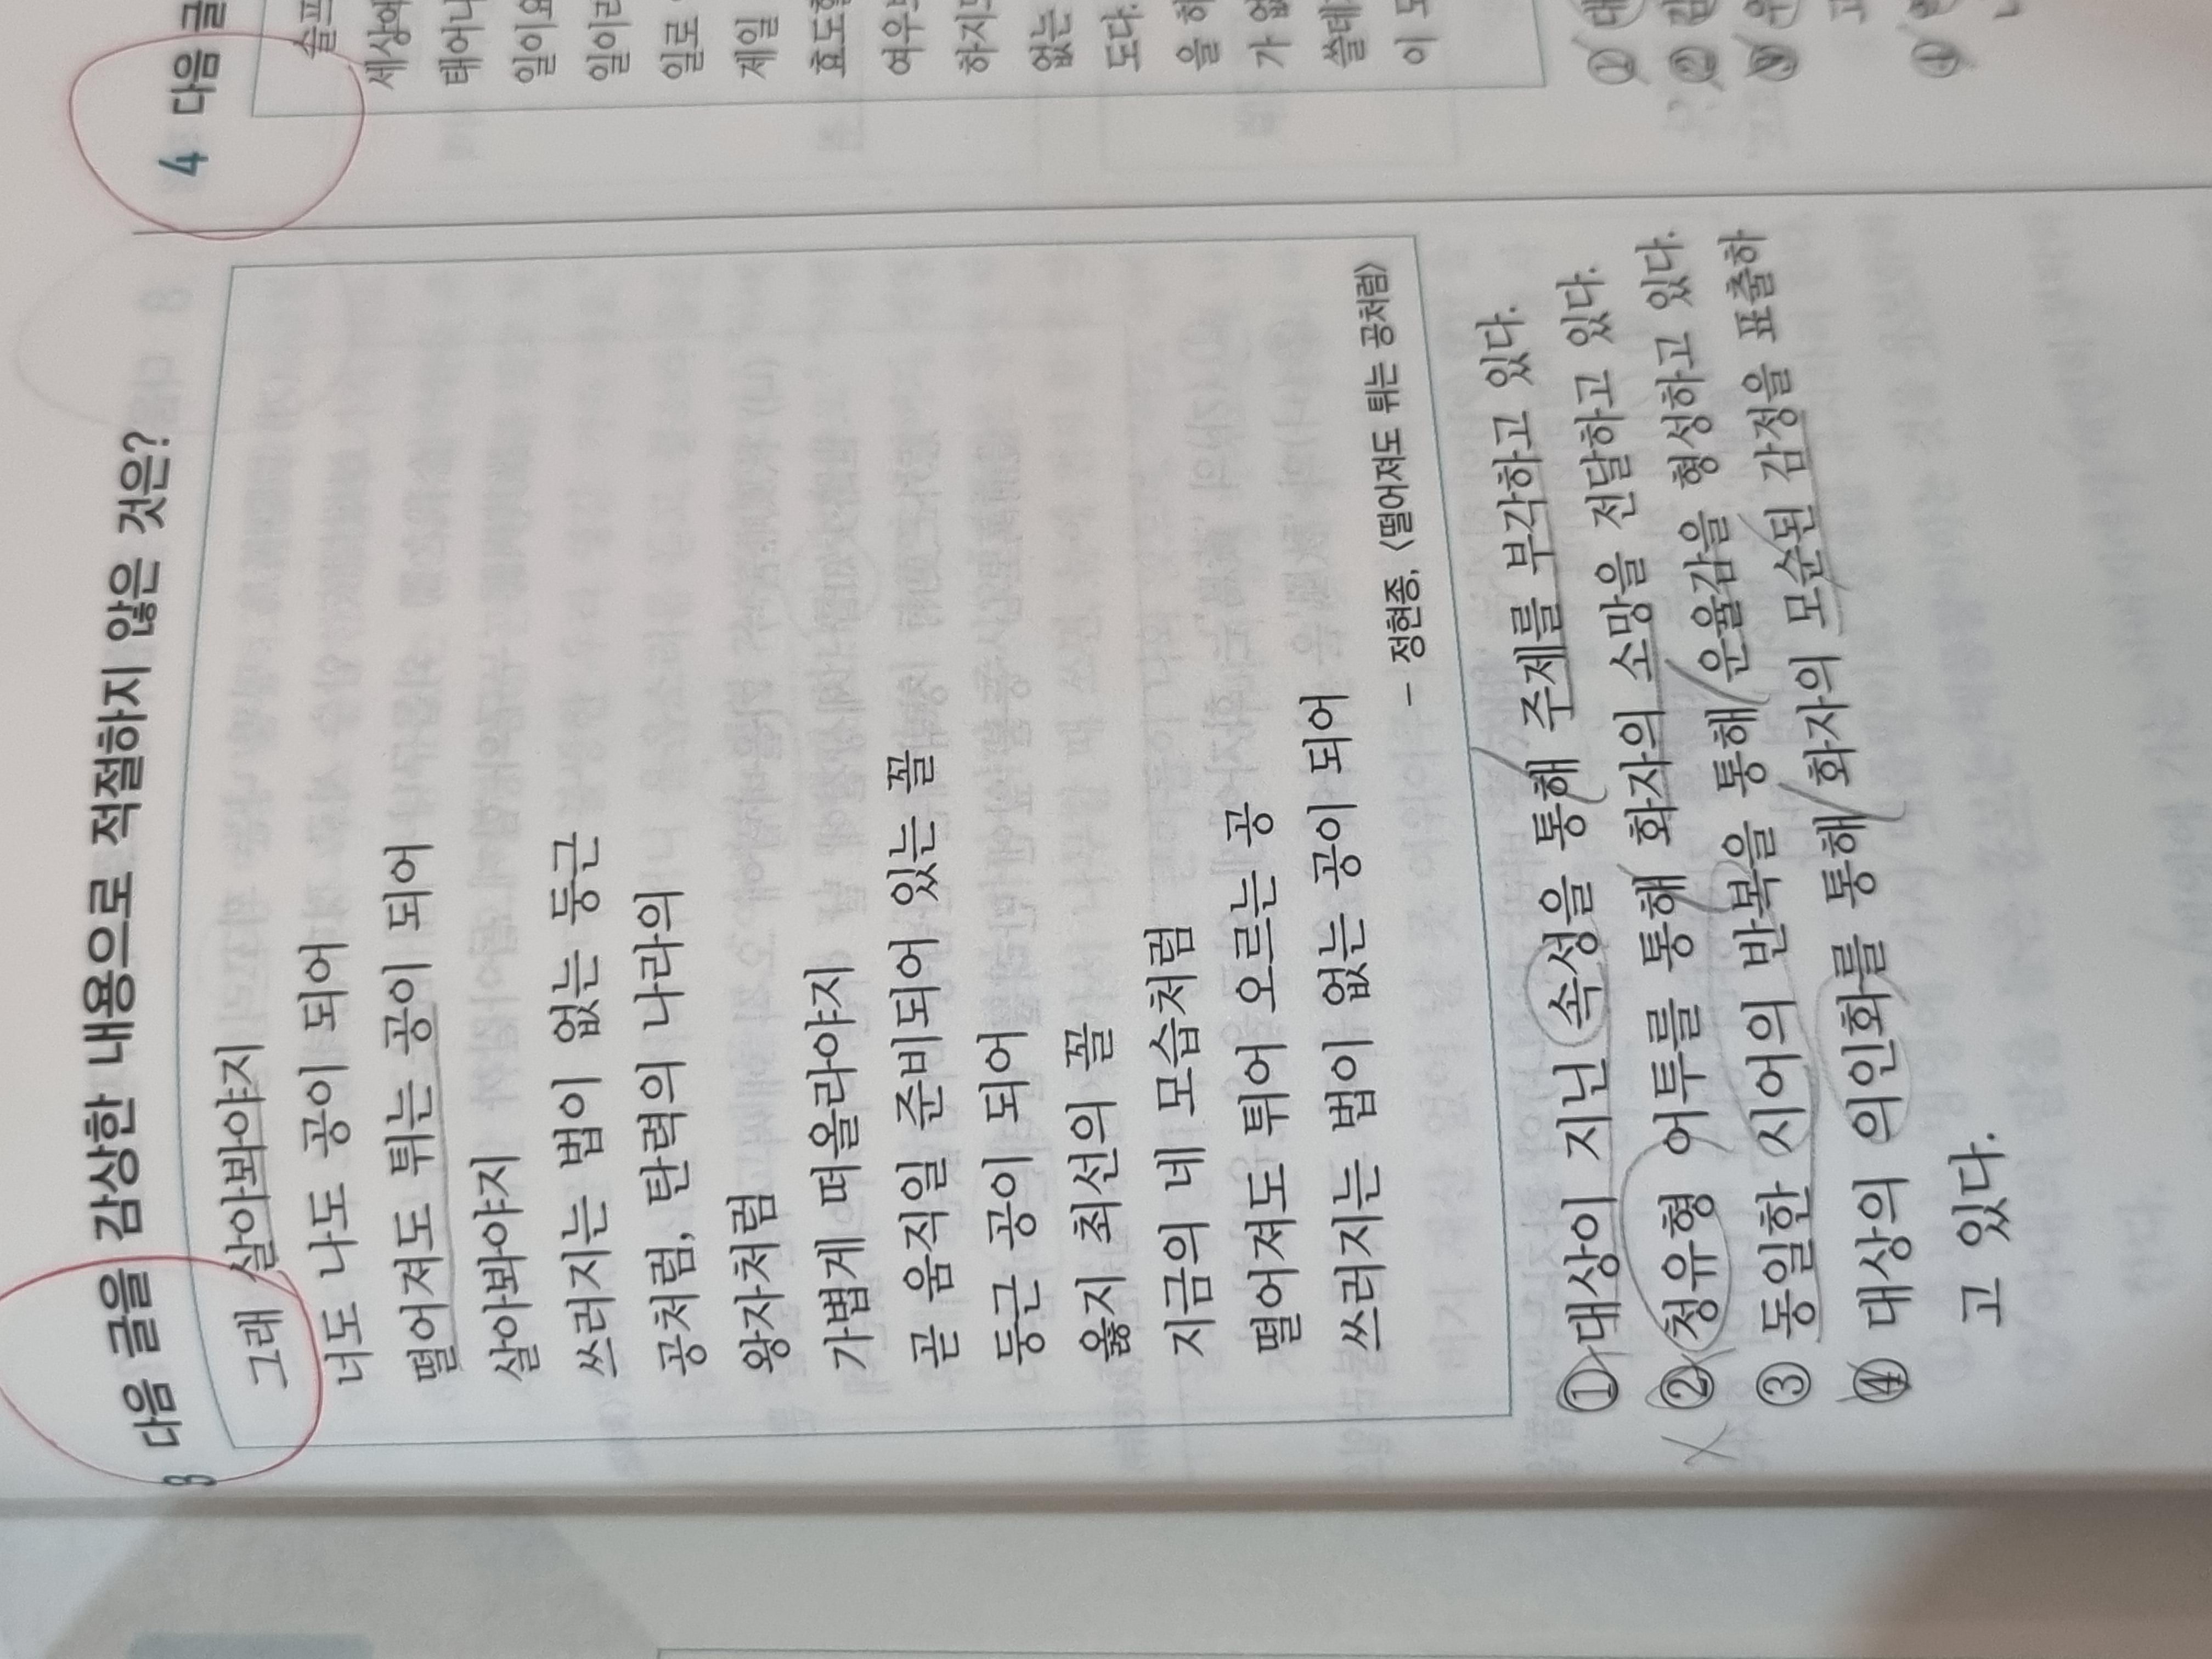 3 다음 글을 감상한 내용으로 적절하지 않은 것은?
그래 살아봐야지
너도 나도 공이 되어
떨어져도 튀는 공이 되어
살아봐야지
쓰러지는 법이 없는 둥근
공처럼, 탄력의 나라의
왕자처럼
가볍게 떠올라야지
곧 움직일 준비되어 있는 꼴
둥근 공이 되어
옳지 최선의 꼴
지금의 네 모습처럼
떨어져도 튀어 오르는 공
쓰러지는 법이 없는 공이 되어
- 정현종, 〈떨어져도 튀는 공처럼〉
① 대상이 지닌 속성을 통해 주제를 부각하고 있다.
② 청유형 어투를 통해 화자의 소망을 전달하고 있다.
③ 동일한 시어의 반복을 통해 운율감을 형성하고 있다.
④ 대상의 의인화를 통해 화자의 모순된 감정을 표출하
고 있다.
4 다음 글
세상에
태어나
일이요
일이라
일로
제일
효도할
여우
하지
없는
도다.
을 하
가 없
쓸데
이 도
① 대
②
③
고
④